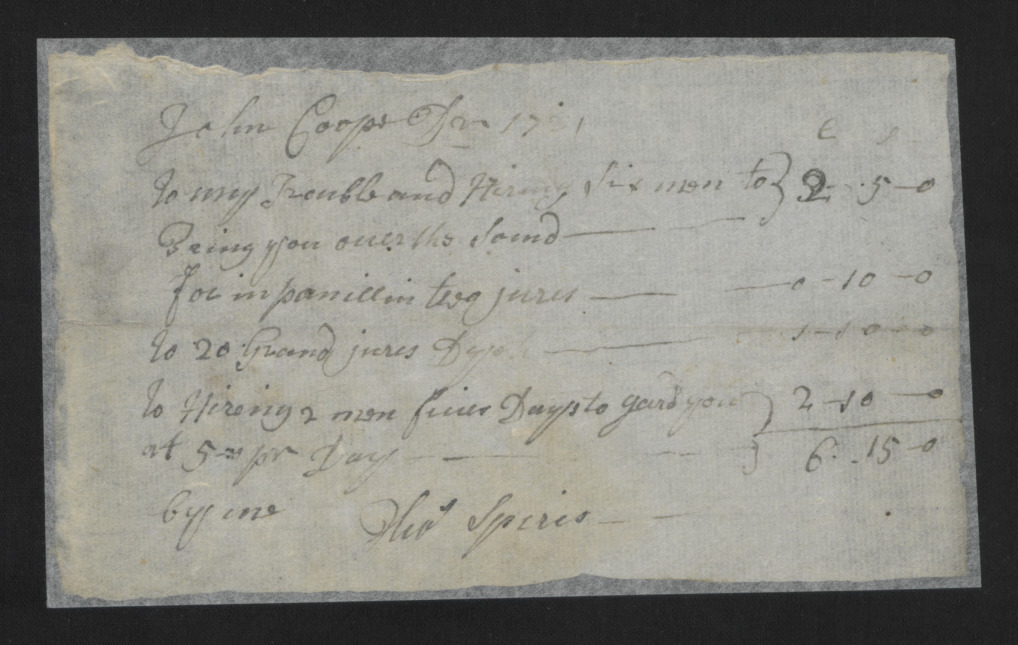 John Coope Dr 1731
£ s
To my Trouble and Hireing Six men to } 2 - 5 - 0
Bring you over the Sound
for inpanillin two jures - 0 - 10 - 0
To 20 Grand jures - 1 - 10 - 0
To Hireing 2 men fiue Days to gard you } 2 - 10 - 0
at 5 pr Day } 6 - 15 - 0
by me Tho Spiris